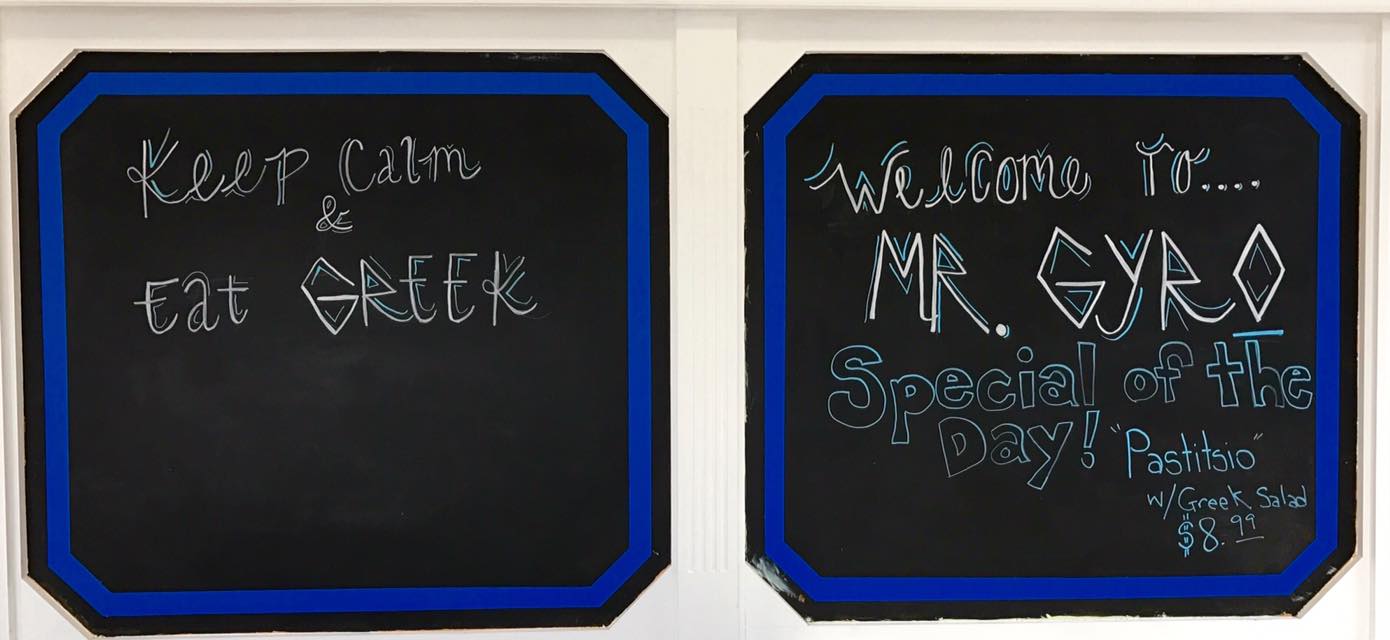 Keep Calm
&
Eat GREEK
Welcome To....
MR. GYRO
Special of the
Day! "Pastitsio"
w/Greek Salad
$8.99